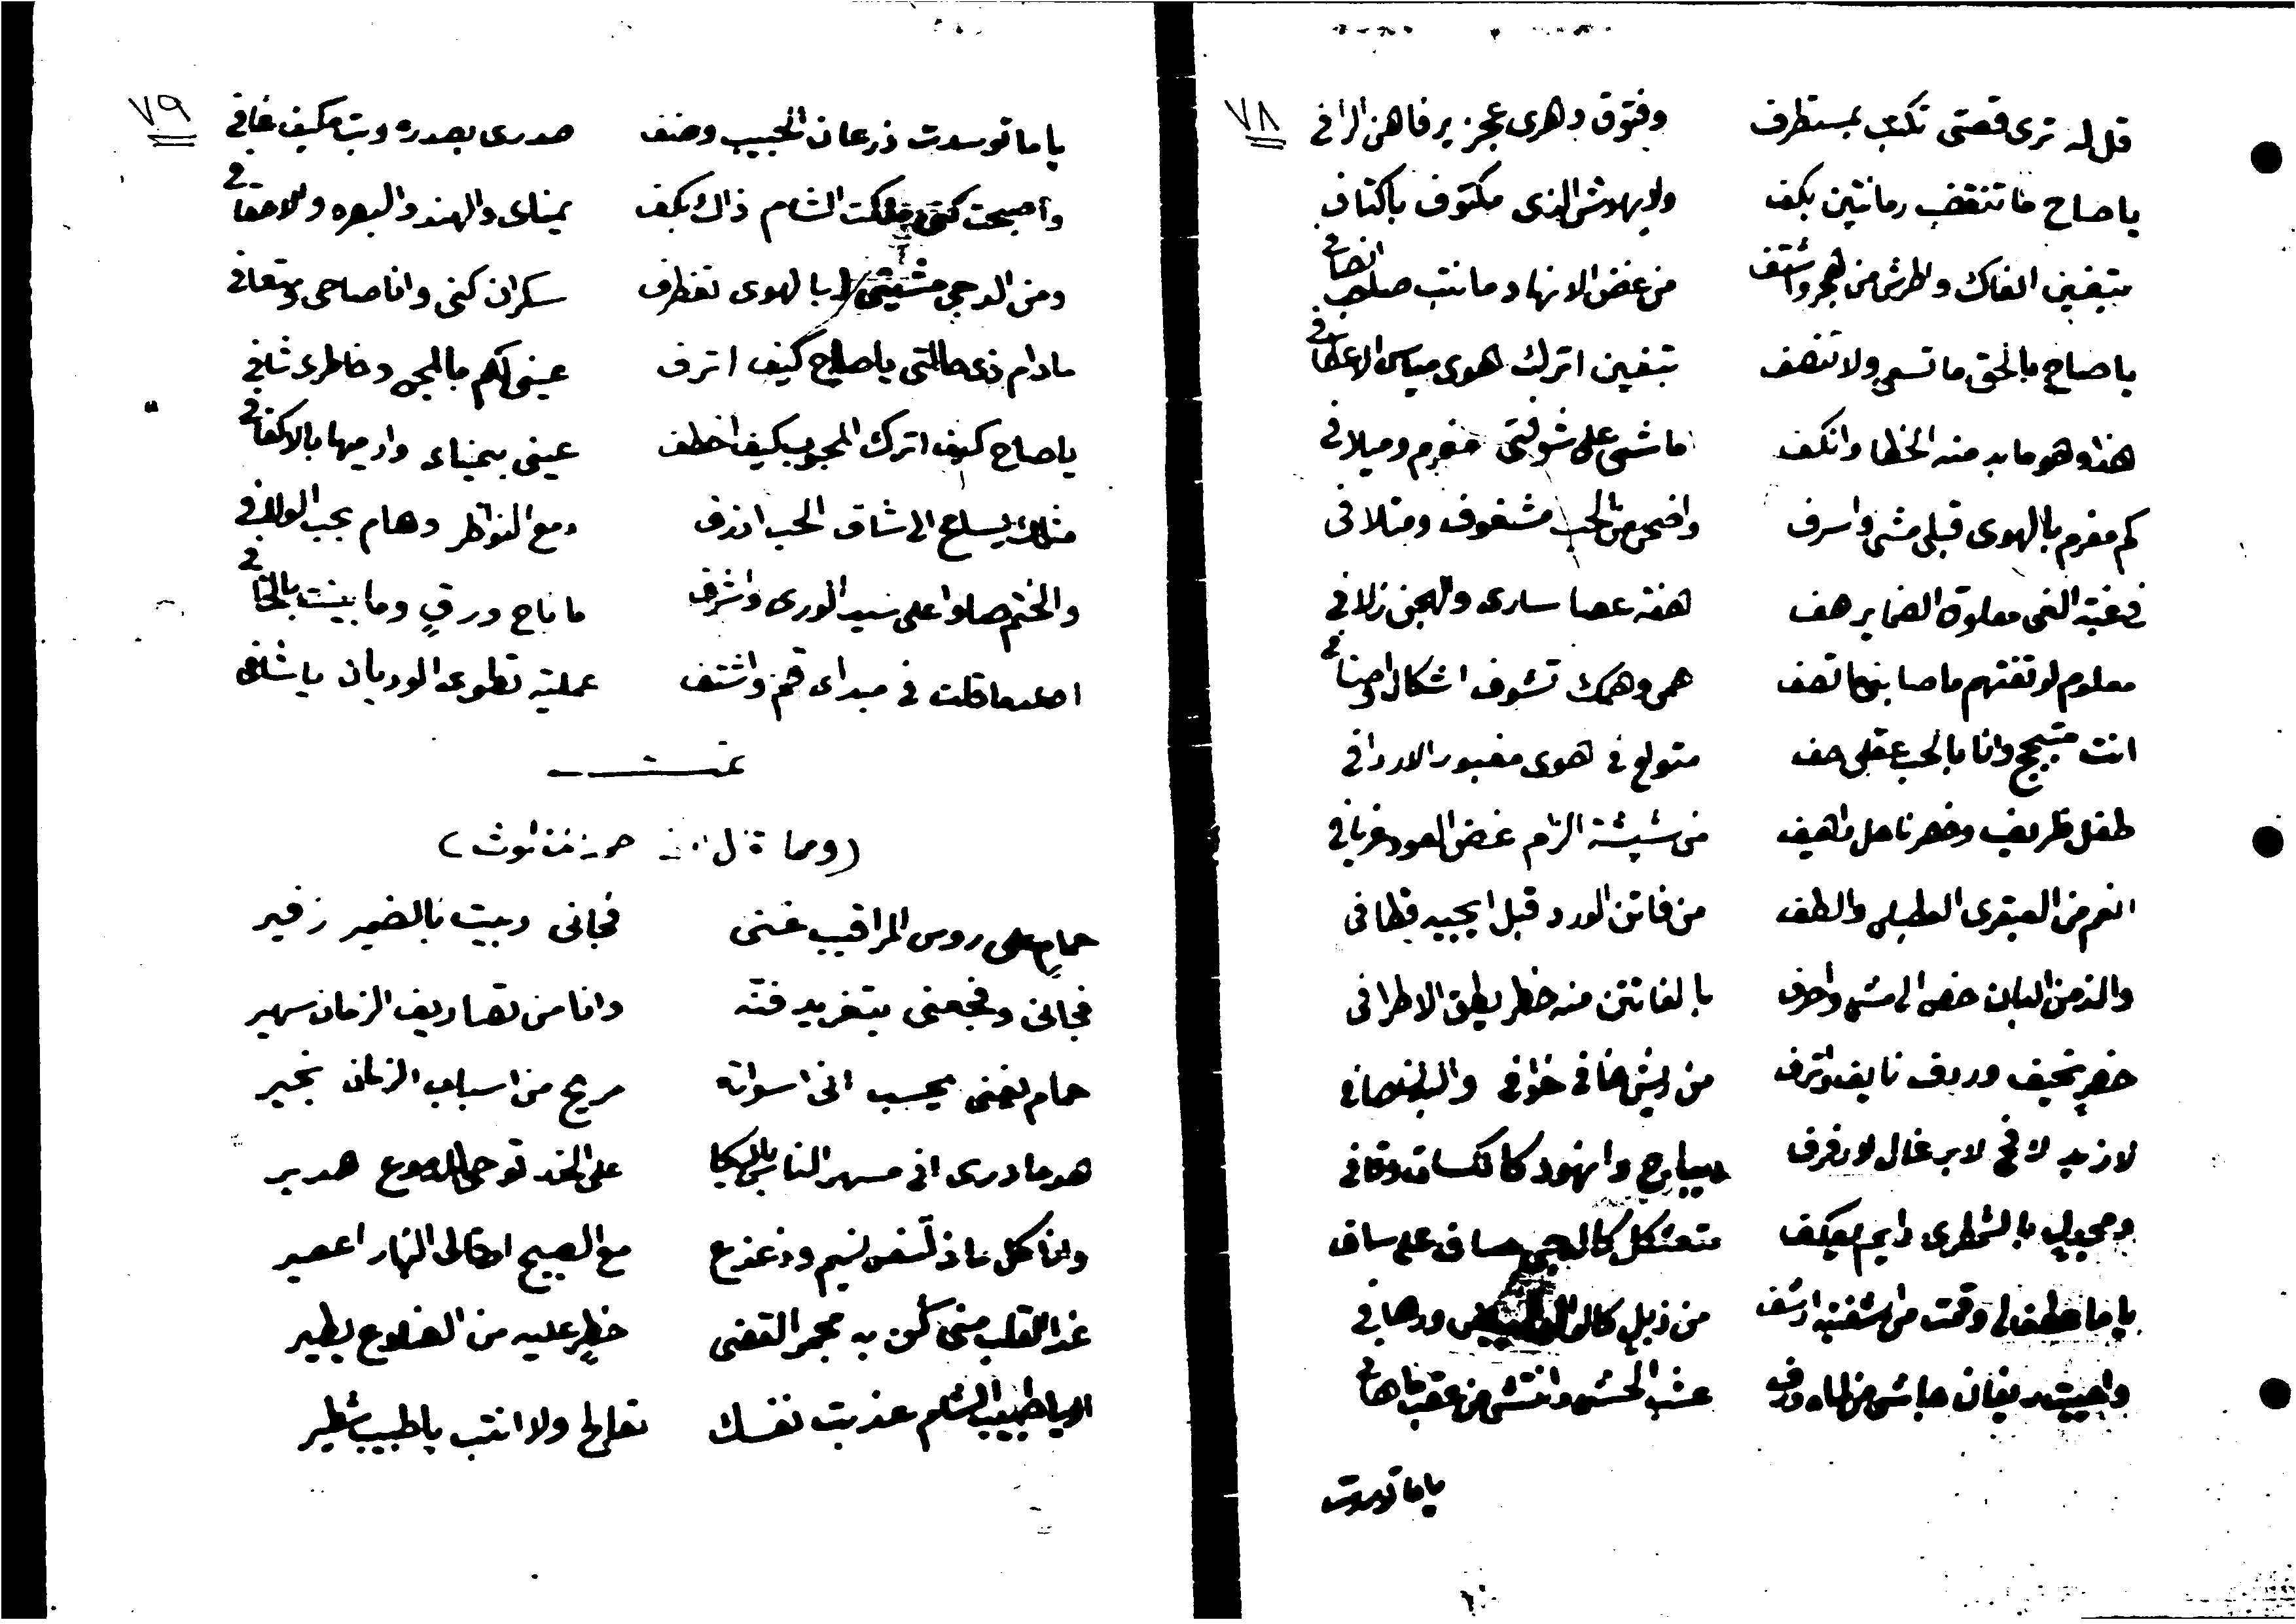 ٧٨
قل له ترى قصتي تكتب بمستطرف وفتوق دهري عجز يرفاهن الرافي
ياصاح ما تنقضب رمانتين بكف ولا يهوش الذي مكتوف باكتاف
تبغين انفاك واطرش من هجر واشتف من غض الانهاد مانتب صاحب انصافي
ياصاح بالحق ما تسعى ولا تنصف تبغين اترك هوى مياس الاعطافي
هذا وهو ما بد منه الخطا وانكف ماشي على شوفتي مغرم وميلافي
كم مغرم بالهوى قبلي مشى واسرف واضحى من الحب مشغوف ومتلافي
في غبة الغي معلوق الضماير هف هفة عصا ساري والهجن زلافي
معلوم لو تفتهم ماصابني ما تصف همي وهمك تشوف اشكال واصنافي
انت متبجح وانا بالحب عقلي خف متولع في هوى معبور الاردافي
طفل ظريف وخصر ناحل واهيف من شيشة الرّام غض العود غريافي
انعم من العبقري العطيلي والطف من فاتن الورد قبل ايجيه قطافي
والذ من البان خضر الى مشى واخف بالفاتنن منه خطر يطق الاطرافي
خصرٍ نحيف وردف نايف واترف من ريش خافي خوافي والبدن صافي
لا زيد لا فج لا برغال لا رفرف ميباج وانهود كالكسات وقافي
ومجديل بالشطري دايم يعكف متعثكل كالدجى ساف على ساف
ياما طفالي وقمت من شفته ارشف من ذبلٍ كالـ ورهافي
واحييت ريفان ماش من لماه ورف عشب الحشى وانتشى من عقب ماهافي
ياما توسدت
٧٩
ياما توسدت ذرعان الحبيب وضف صدري بصدره وبت مكيف غافي
واصبحت كني ملكت الشام ذاك بكف يمناي والهند والبصره والاحقافي
ومن الدجى مشيتي بالهوى تغطرف سكران كني وانا صاحي ومتعافي
مادام ذي حالتي ياصاح كيف اترف عيني لكم بالمجي وخاطري شافي
ياصاح كيف اترك المحبوب كيف اخطف عيني بيمناي وارميها بالاكفافي
مثلك يسلج الى شاق الحب اذرف دمع النواظر وهام بحب الولافي
والختم صلوا على سيد الورى واشرف ما ناح ورقٍ وما بينت بالخافي
اصليها قلت في مبداي قم واشتف عملية تطوي الوريان ياشافي
تمت
(ومما قال حمد مغلوث)
حمامٍ على روس المراقب غنى فجاني وبيت بالضمير زفير
فجاني وفجعني بتغريد فنه وانا من تصاريف الزمان سهير
حمام يغني يحسب اني اسواته مريح من اسباب الزمان بخير
هو ما درى اني مسهر الناس بالبكا على الخد توحي للدموع هدير
وانا كل ما ذلّف نسيم وذعذع مع الصبح اوتالي النهار اعصير
غدا القلب مني كن به مجمر الغضى خطرٍ عليه من الضلوع يطير
الا ياطبيب الشام عذبت نفسك تعالج ولا انتب ياطبيب شطير